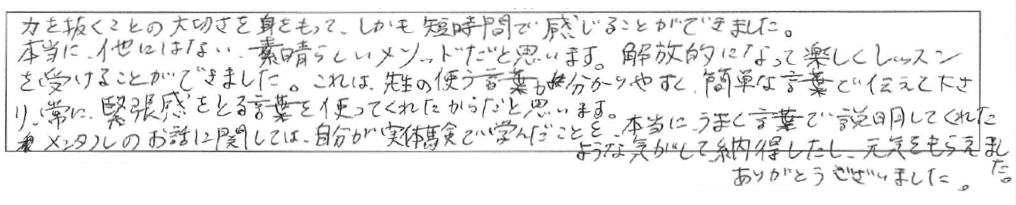 力を抜くことの大切さを身をもって、しかも短時間で感じることができました。
本当に、他にはない、素晴らしいメソッドだと思います。解放的になって楽しくレッスン
を受けることができました。これは、先生の使う言葉も分かりやすく、簡単な言葉で伝えて下さ
り、常に、緊張感をとる言葉を使ってくれたからだと思います。
メンタルのお話に関しては、自分が実体験で学んだことを、本当に、うまく言葉で説明してくれた
ような気がして納得したし、元気をもらえました。
ありがとうございました。